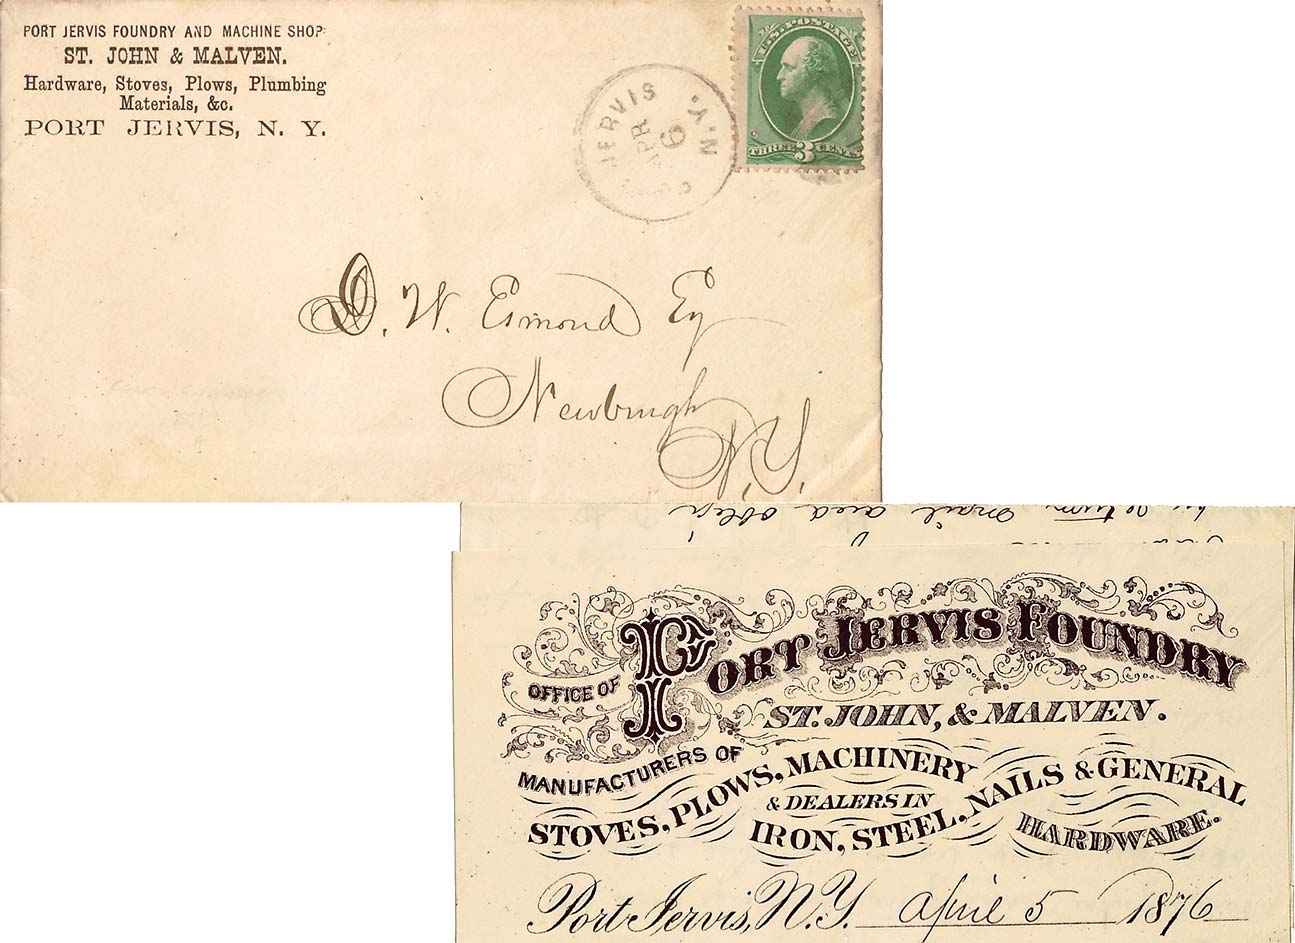 PORT JERVIS FOUNDRY AND MACHINE SHOP.
ST. JOHN & MALVEN.
Hardware, Stoves, Plows, Plumbing
Materials, &c.
PORT JERVIS, N. Y.
JERVIS N.Y.
APR
6
U.S. POSTAGE
THREE 3 CENTS
D. W. Esmond Esq
Newburgh
N.Y.
by return mail and oblige
OFFICE OF
PORT JERVIS FOUNDRY
ST. JOHN, & MALVEN.
MANUFACTURERS OF
STOVES, PLOWS, MACHINERY
& DEALERS IN
IRON, STEEL, NAILS & GENERAL
HARDWARE.
Port Jervis, N.Y. April 5 1876